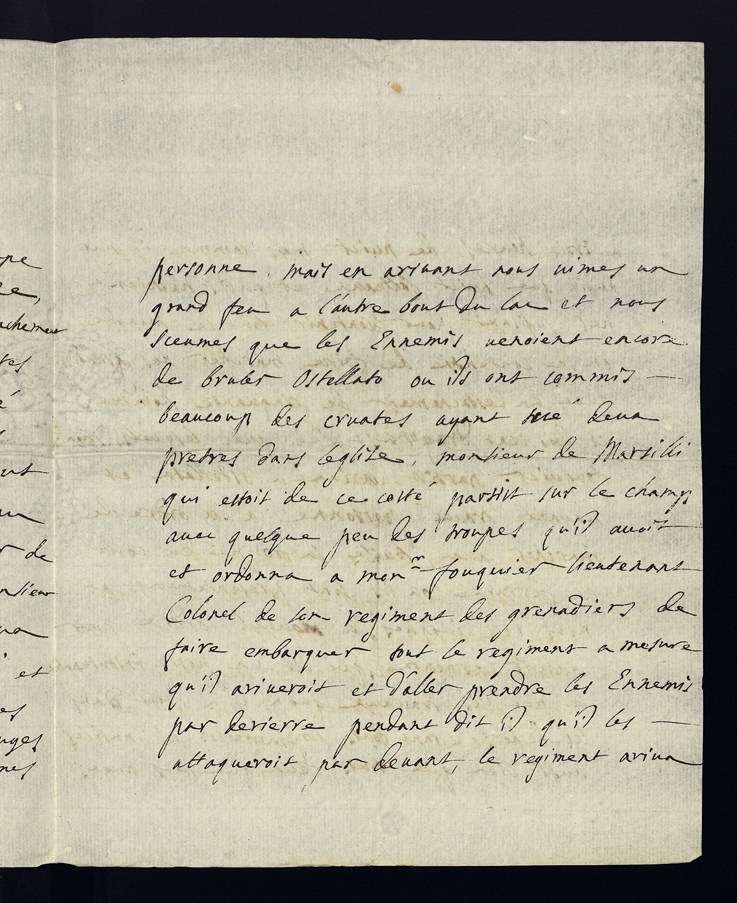 personne, mais en arivant nous uimes un
grand feu a l'autre bout du lac et nous
sceumes que les Ennemis uenoient encore
de bruler Ostellato ou ils ont commis —
beaucoup des cruates ayant tué deux
prestres dans leglise, monsieur de Marsilli
qui estoit de ce costé partit sur le champs
auec quelque peu des troupes qu'il auoit
et ordonna a monr fouquier lieutenant
Colonel de son regiment des grenadiers de
faire embarquer tout le regiment a mesure
qu'il ariueroit et d'aller prendre les Ennemis
par derierre pendant dit il qu'il les —
attaqueroit par deuant, le regiment ariua